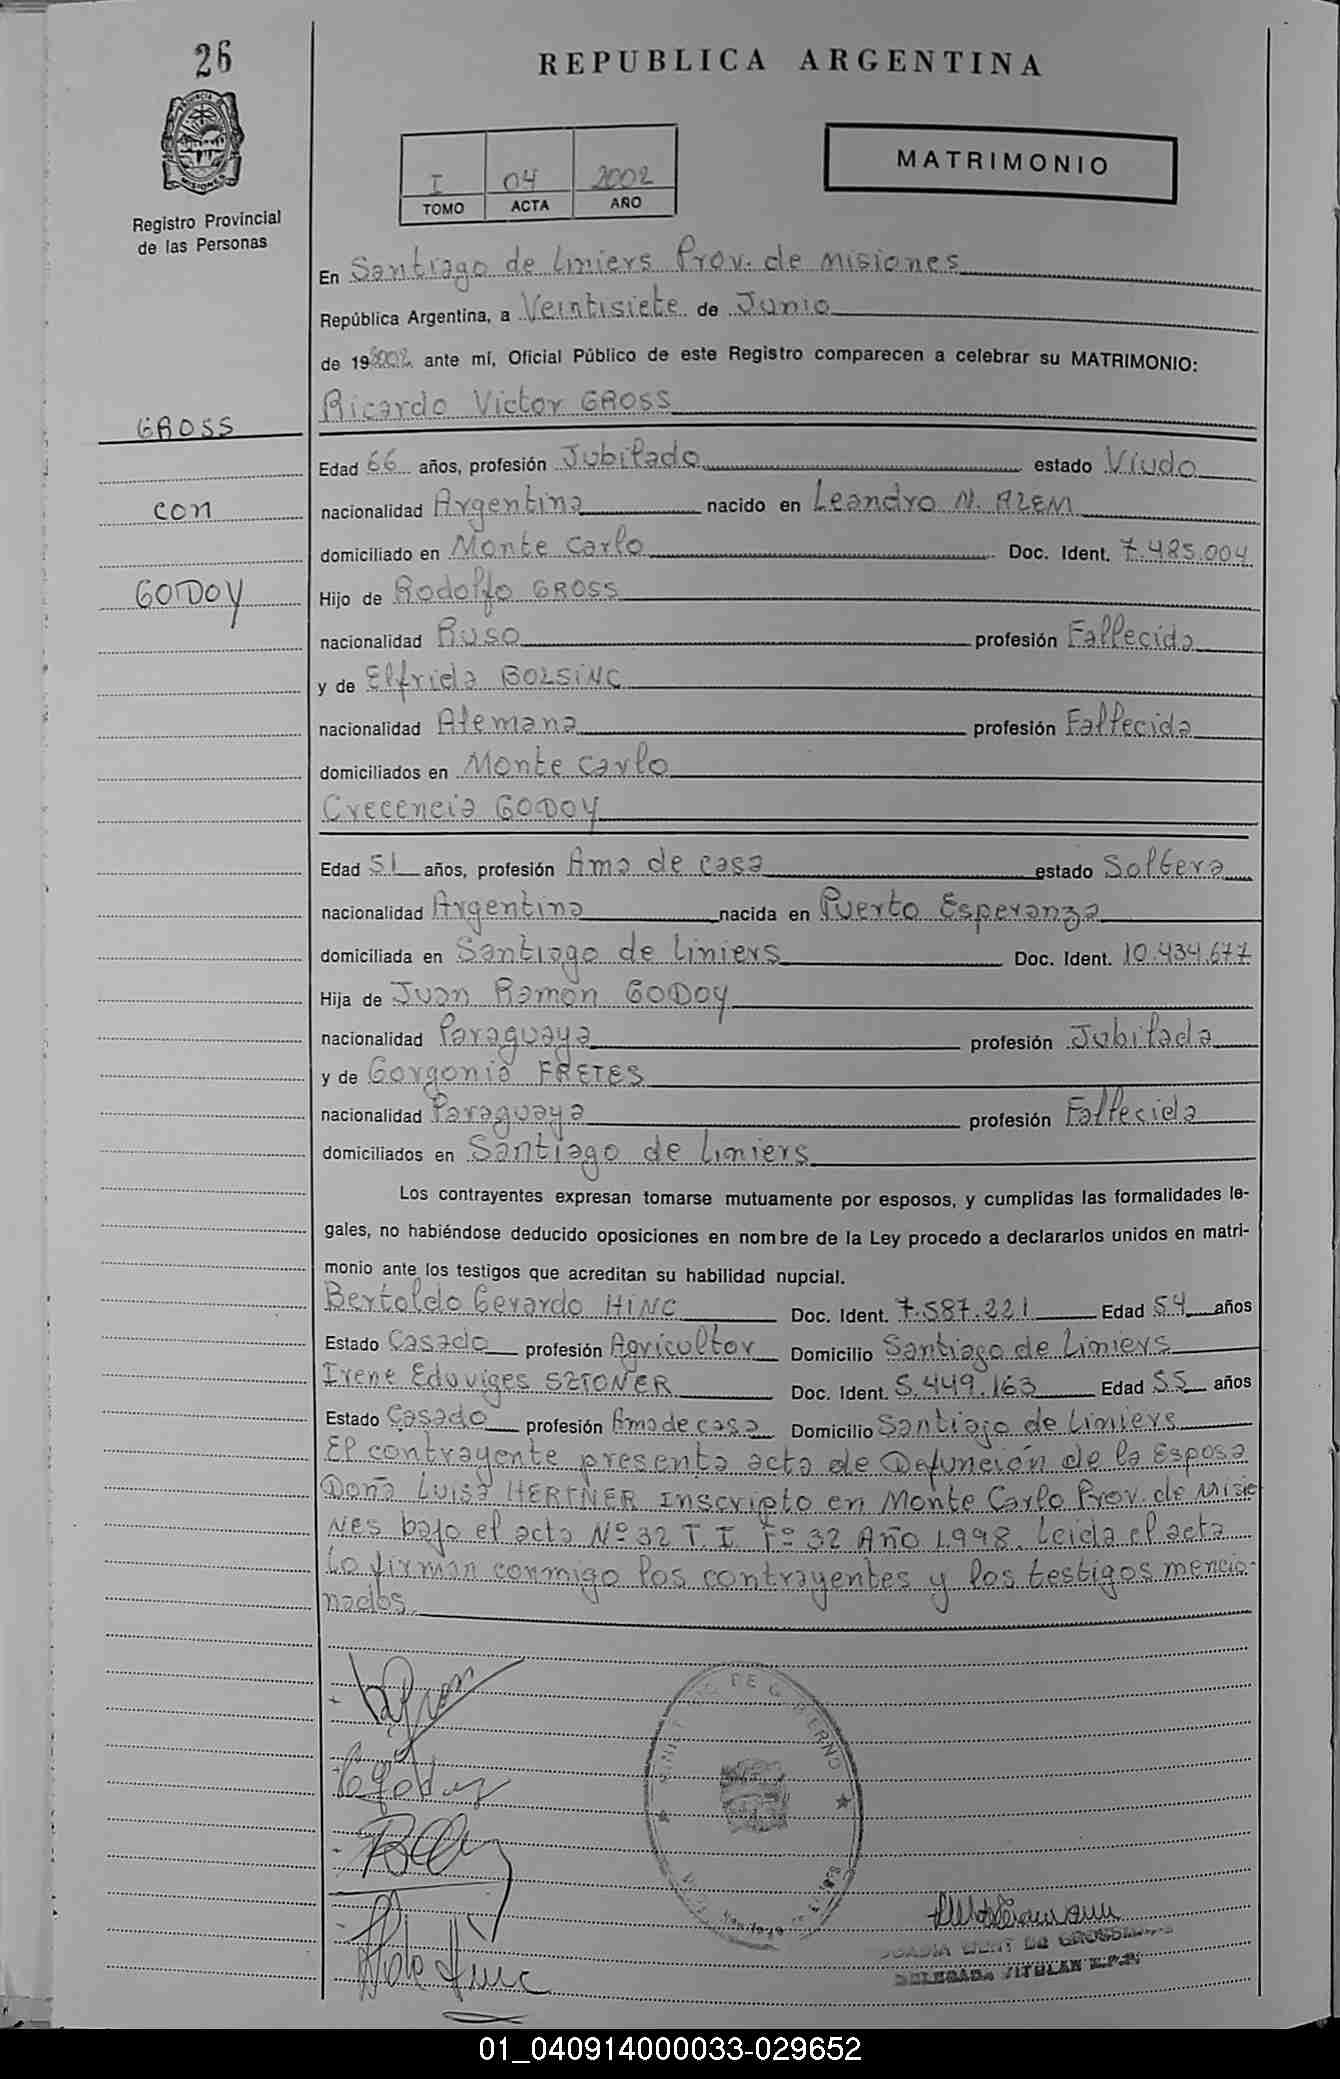 26
REPUBLICA ARGENTINA
PROVINCIA DE
MISIONES
Registro Provincial
de las Personas
I 04 2002
TOMO ACTA AÑO
MATRIMONIO
En Santiago de Liniers Prov. de Misiones
República Argentina, a Veintisiete de Junio
de 19 2002 ante mí, Oficial Público de este Registro comparecen a celebrar su MATRIMONIO:
Ricardo Victor GROSS
GROSS
Edad 66 años, profesión Jubilado estado Viudo
con
nacionalidad Argentina nacido en Leandro N. ALEM
domiciliado en Monte Carlo Doc. Ident. 7.485.004
GODOY
Hijo de Rodolfo GROSS
nacionalidad Ruso profesión Fallecido
y de Elfrida BOLSINC
nacionalidad Alemana profesión Fallecida
domiciliados en Monte Carlo
Crecencia GODOY
Edad 51 años, profesión Ama de casa estado Soltera
nacionalidad Argentina nacida en Puerto Esperanza
domiciliada en Santiago de Liniers Doc. Ident. 10.434.677
Hija de Juan Ramon GODOY
nacionalidad Paraguaya profesión Jubilada
y de Gorgonia FRETES
nacionalidad Paraguaya profesión Fallecida
domiciliados en Santiago de Liniers
Los contrayentes expresan tomarse mutuamente por esposos, y cumplidas las formalidades le-
gales, no habiéndose deducido oposiciones en nombre de la Ley procedo a declararlos unidos en matri-
monio ante los testigos que acreditan su habilidad nupcial.
Bertoldo Gerardo HINC Doc. Ident. 7.587.221 Edad 54 años
Estado Casado profesión Agricultor Domicilio Santiago de Liniers
Irene Eduviges SZTONER Doc. Ident. 5.449.163 Edad 55 años
Estado Casado profesión Ama de casa Domicilio Santiago de Liniers
El contrayente presenta acta de Defunción de la Esposa
Doña Luisa HERTNER Inscripto en Monte Carlo Prov. de Misio
nes bajo el acta Nº 32 T. I Fº 32 Año 1.998. Leida el acta
Lo firman conmigo los contrayentes y los testigos mencio-
nados.
DE GOBIERNO
DELEGADA TITULAR R.P.P.
01_040914000033-029652